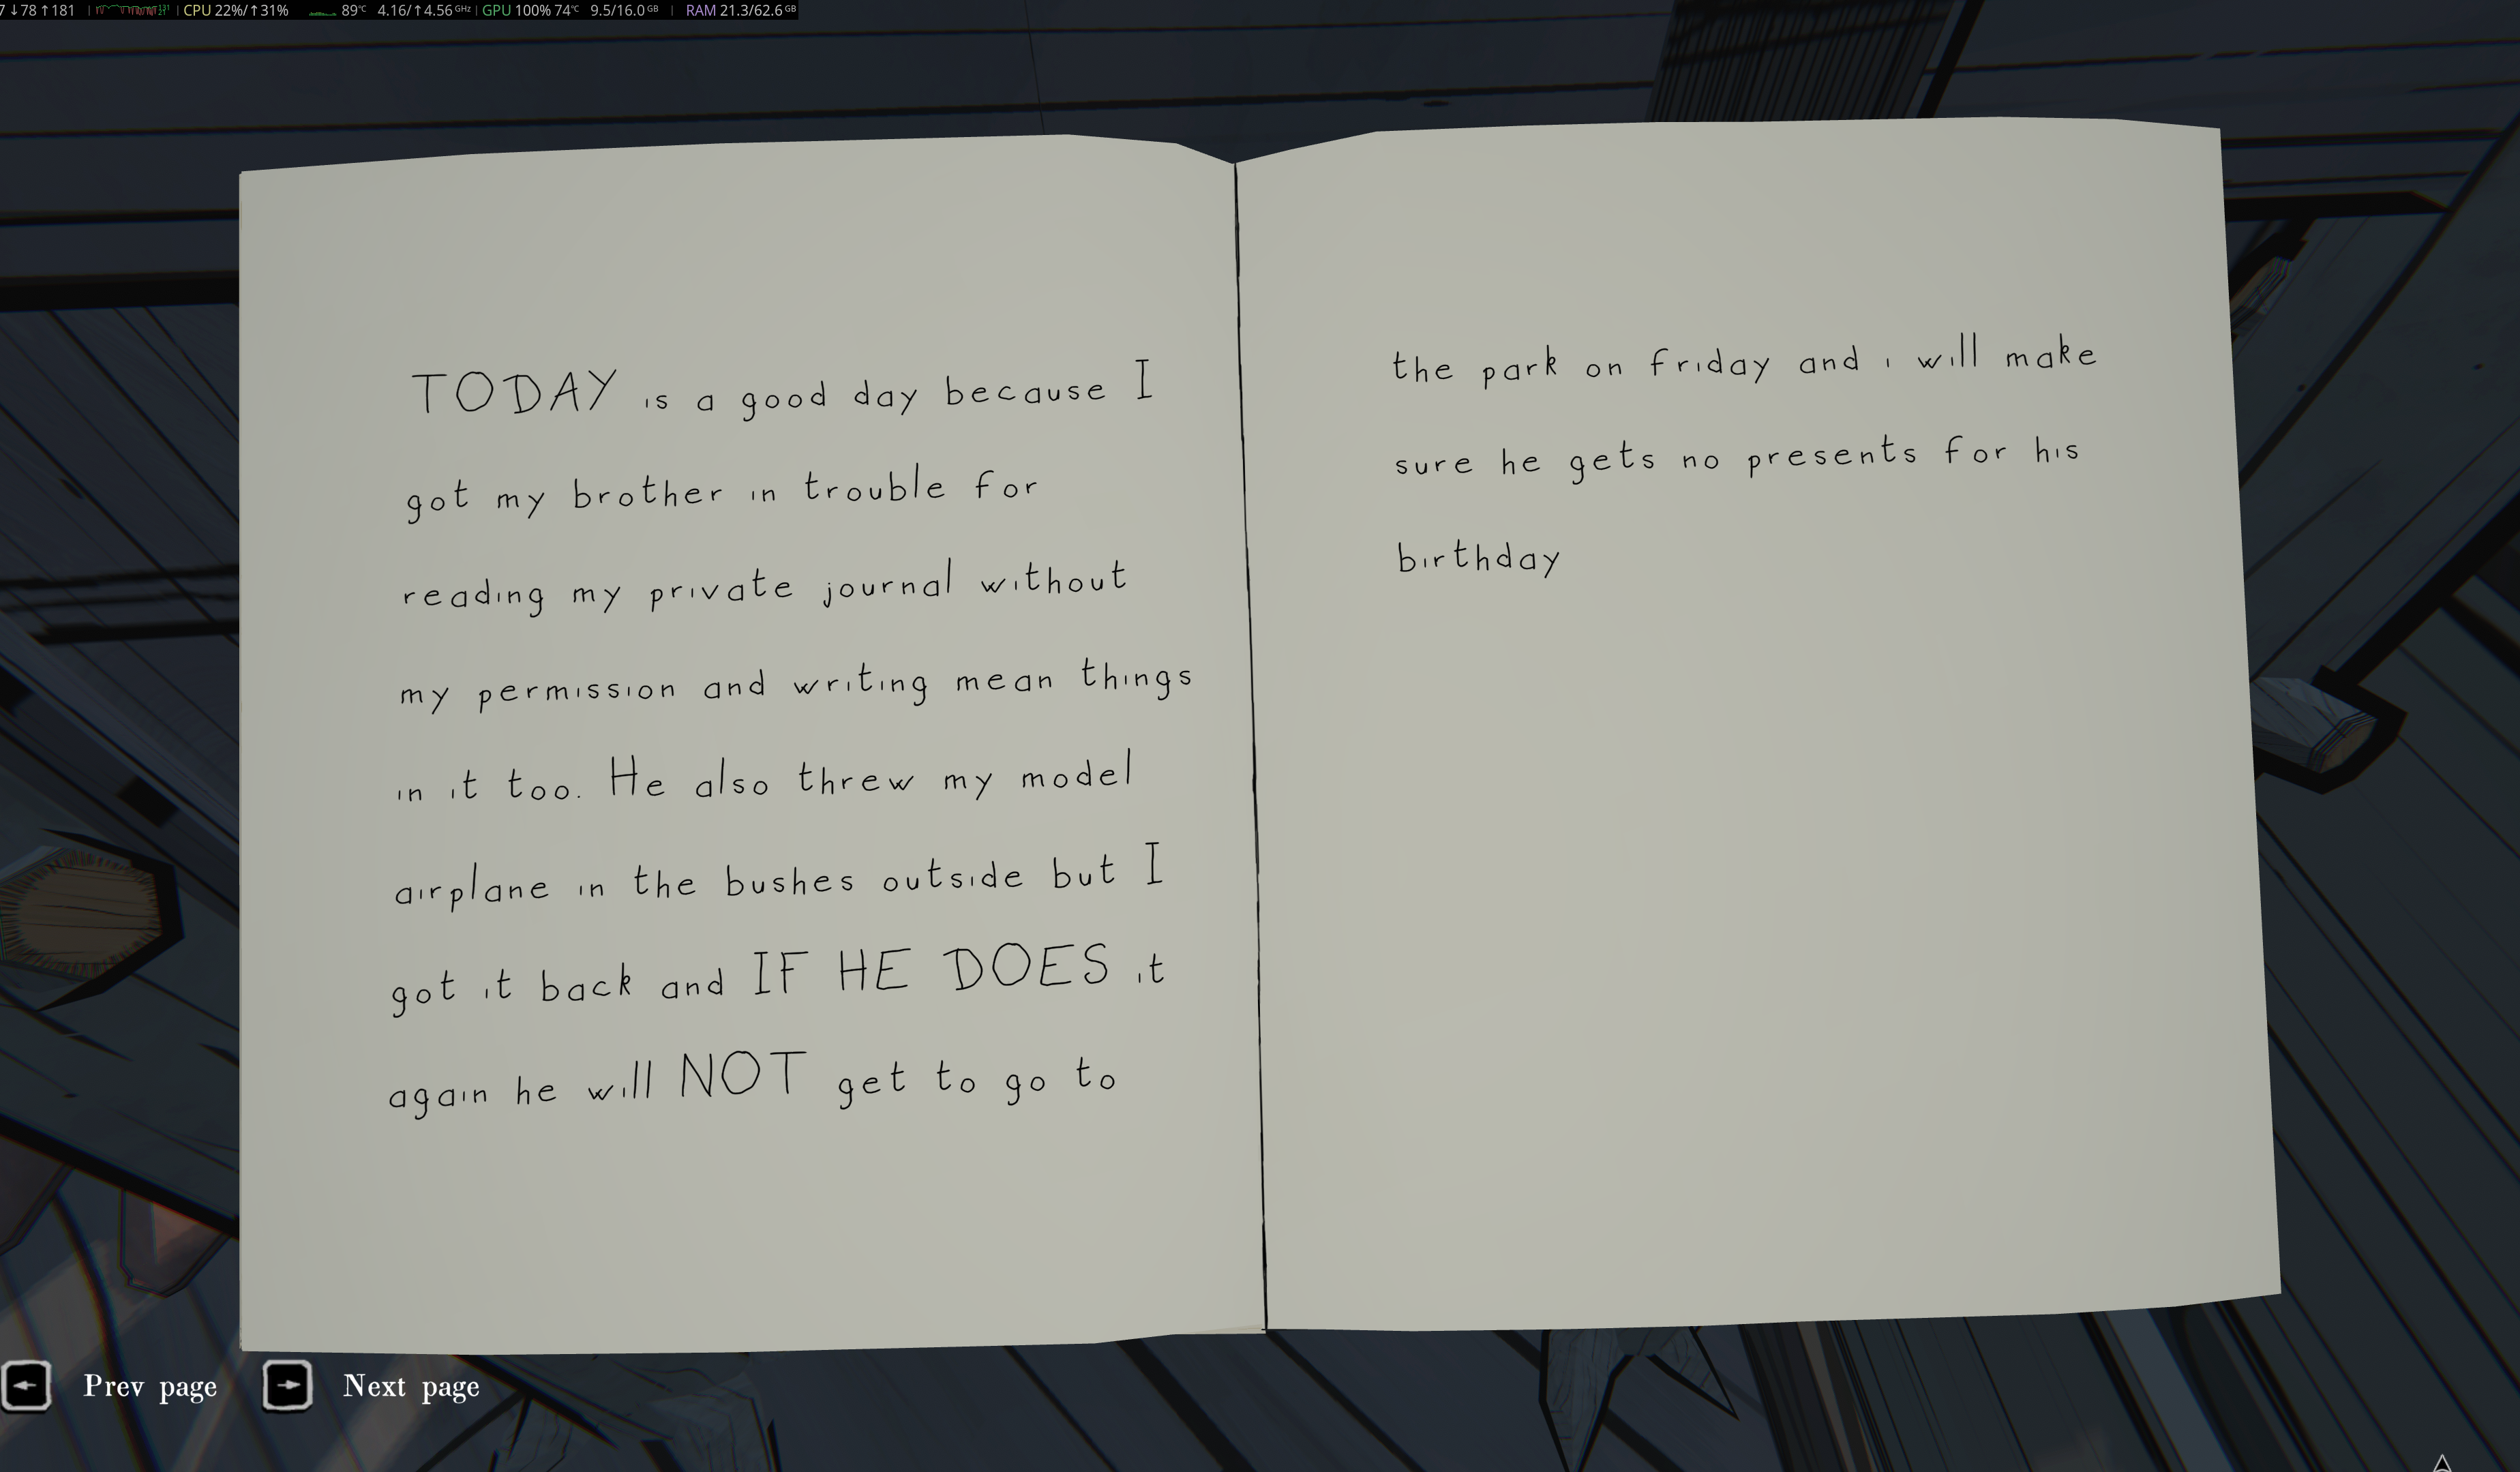 7 ↓78 ↑181 | CPU 22%/↑31% 89°C 4.16/↑4.56 GHz | GPU 100% 74°C 9.5/16.0 GB | RAM 21.3/62.6 GB
TODAY is a good day because I
got my brother in trouble for
reading my private journal without
my permission and writing mean things
in it too. He also threw my model
airplane in the bushes outside but I
got it back and IF HE DOES it
again he will NOT get to go to
the park on friday and i will make
sure he gets no presents for his
birthday
Prev page
Next page